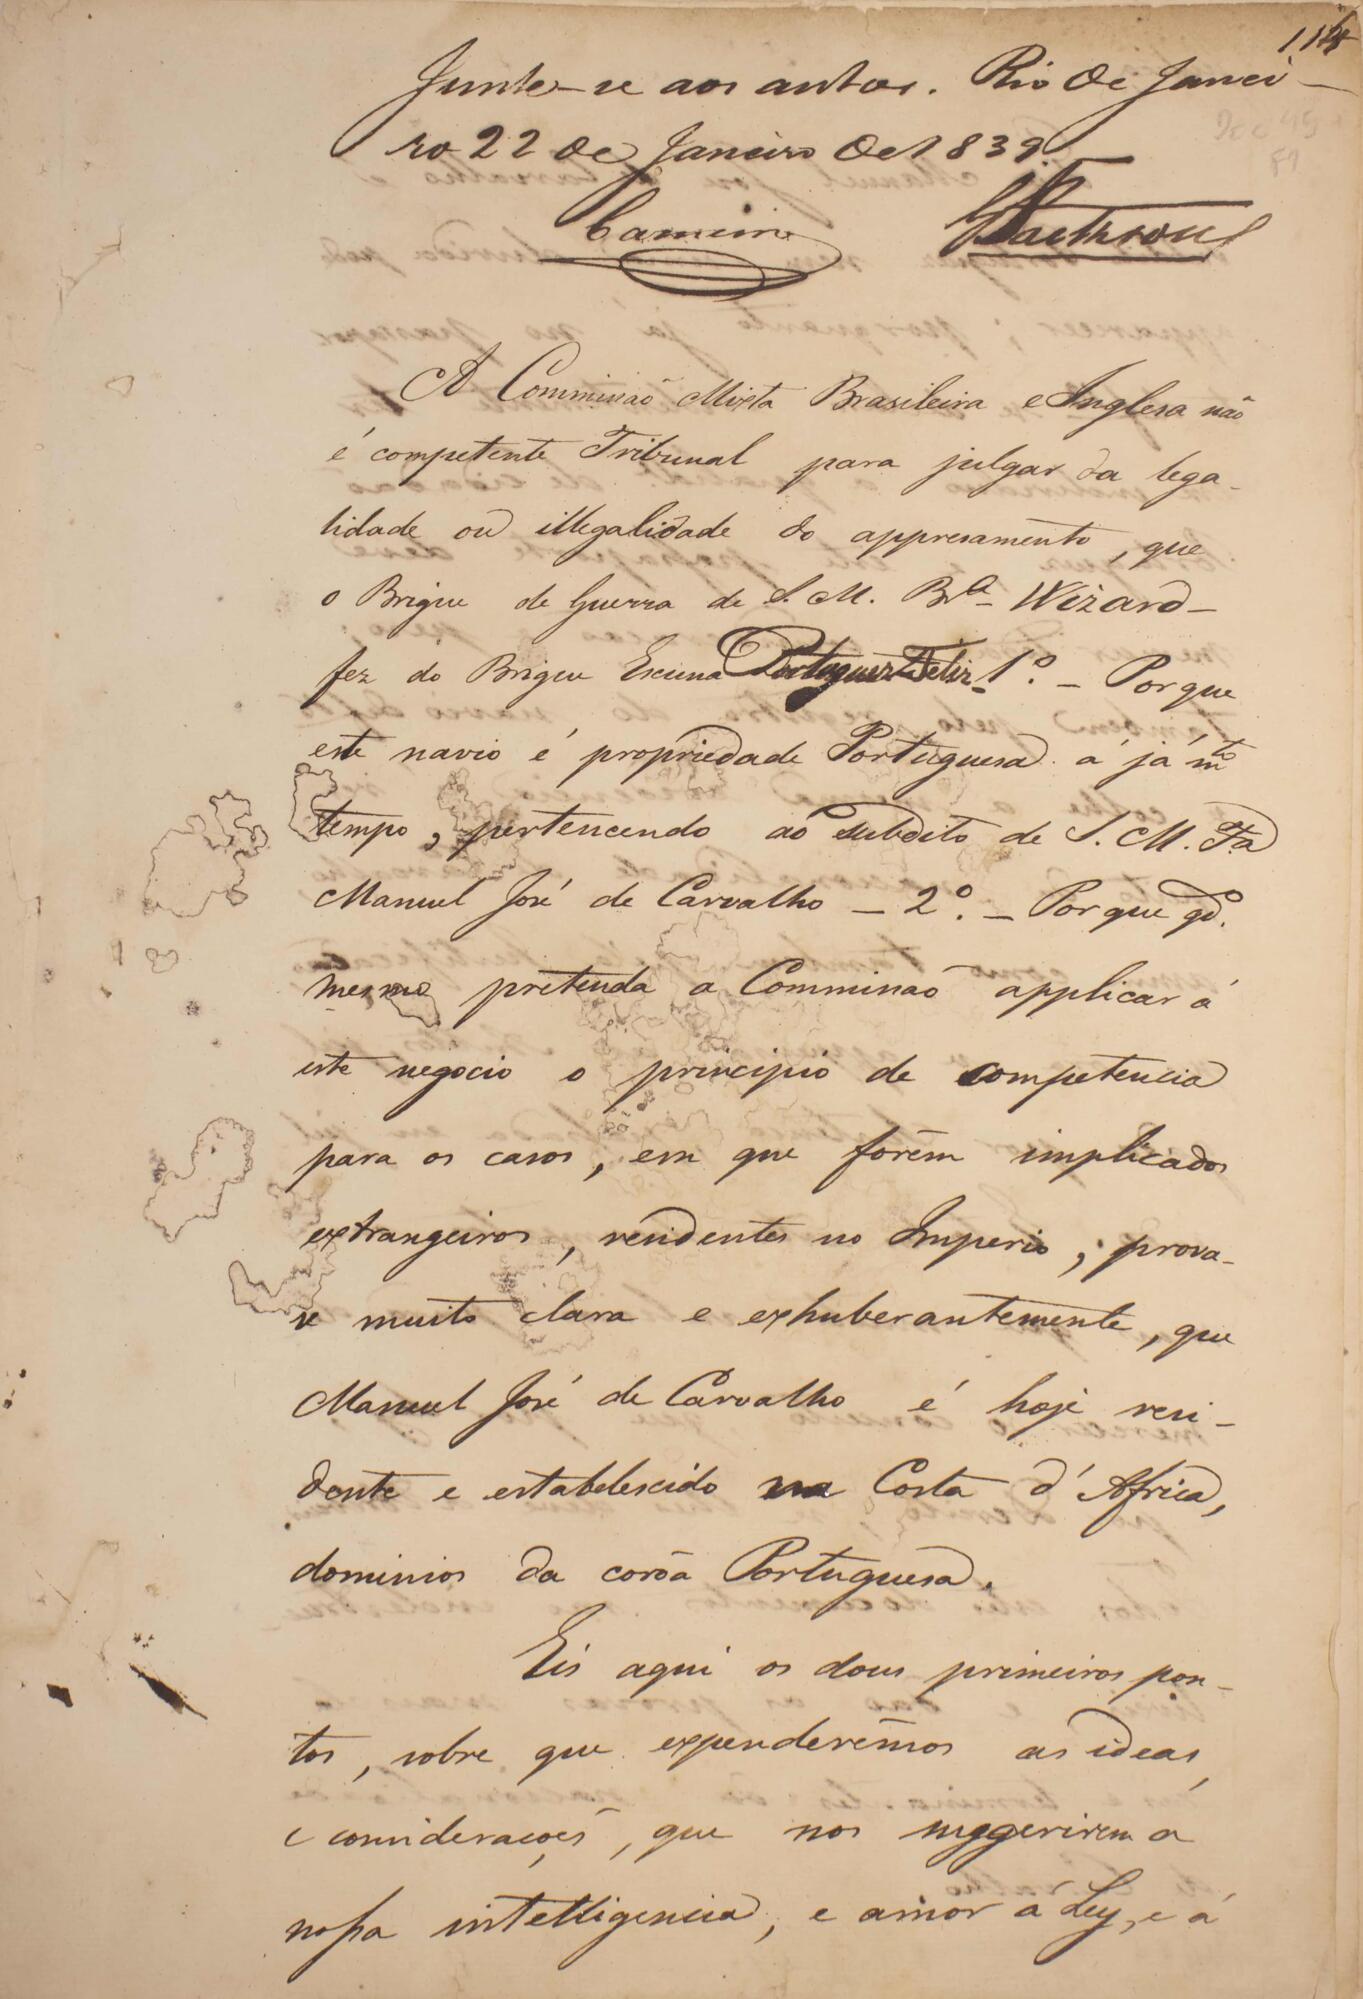 114
Junte-se aos autos. Rio de Janei-
ro 22 de Janeiro de 1839.
Carneiro
A Commissaõ Mixta Brasileira e Inglesa não
é competente Tribunal para julgar da lega-
lidade ou illegalidade do appresamento, que
o Brigue de Guerra de S. M. Bra. Wizard -
fez do Brigue Escuna Portuguez Feliz - 1º. - Porque
este navio é propriedade Portuguesa á já mto
tempo, pertencendo aó subdito de S. M. Fa
Manuel José de Carvalho - 2º. - Porque qdo.
mesmo pretenda a Commissaõ applicar á
este negocio o principio de competencia
para os casos, em que fôrem implicados
extrangeiros, residentes no Imperio, prova-
se muito clara e exhuberantemente, que
Manuel José de Carvalho é hoje resi-
dente e estabelescido na Costa d'Africa,
dominios da corôa Portuguesa.
Eis aqui os dous primeiros pon-
tos, sobre que expenderêmos as ideas,
e consideraçoẽs, que nos suggerirem a
nossa intelligencia, e amor á Ley, e á